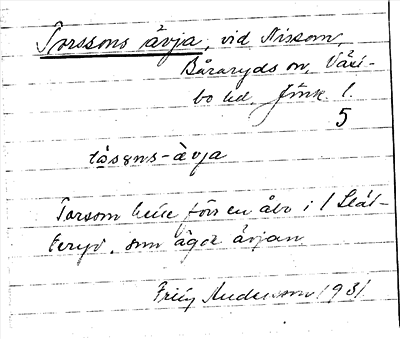 Torssons ävja, vid Nissan,
Båraryds sn, Väst-
bo hd Jönk. l.
5
tåsɷns-ävja
Torsson hette förr en åbo i
som ägde ävjan
Fritz Andersson 1931